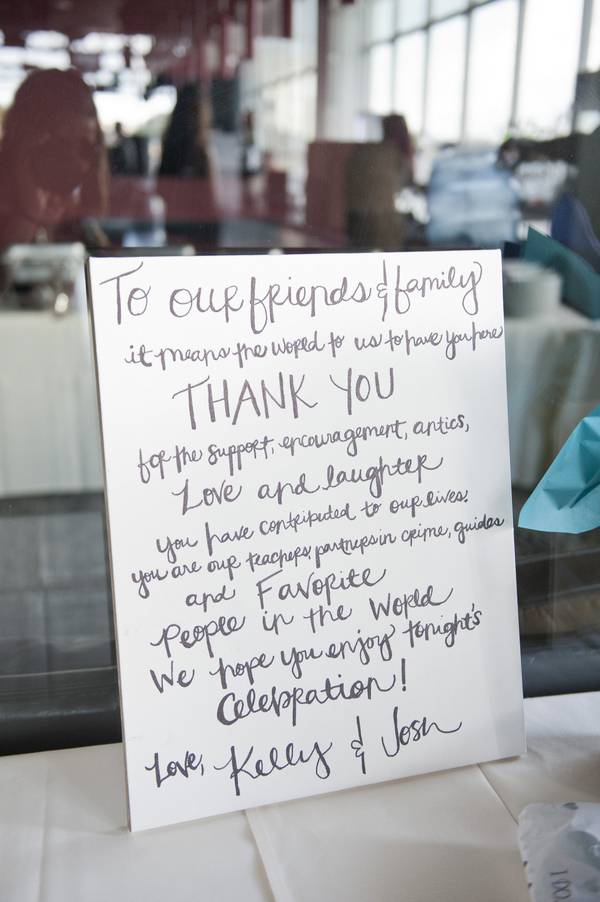 To our friends & family
it means the world to us to have you here
THANK YOU
for the support, encouragement, antics,
Love and laughter
you have contributed to our lives.
you are our teachers, partners in crime, guides
and Favorite
People in the World
We hope you enjoy tonight's
Celebration!
Love, Kelly & Josh
100